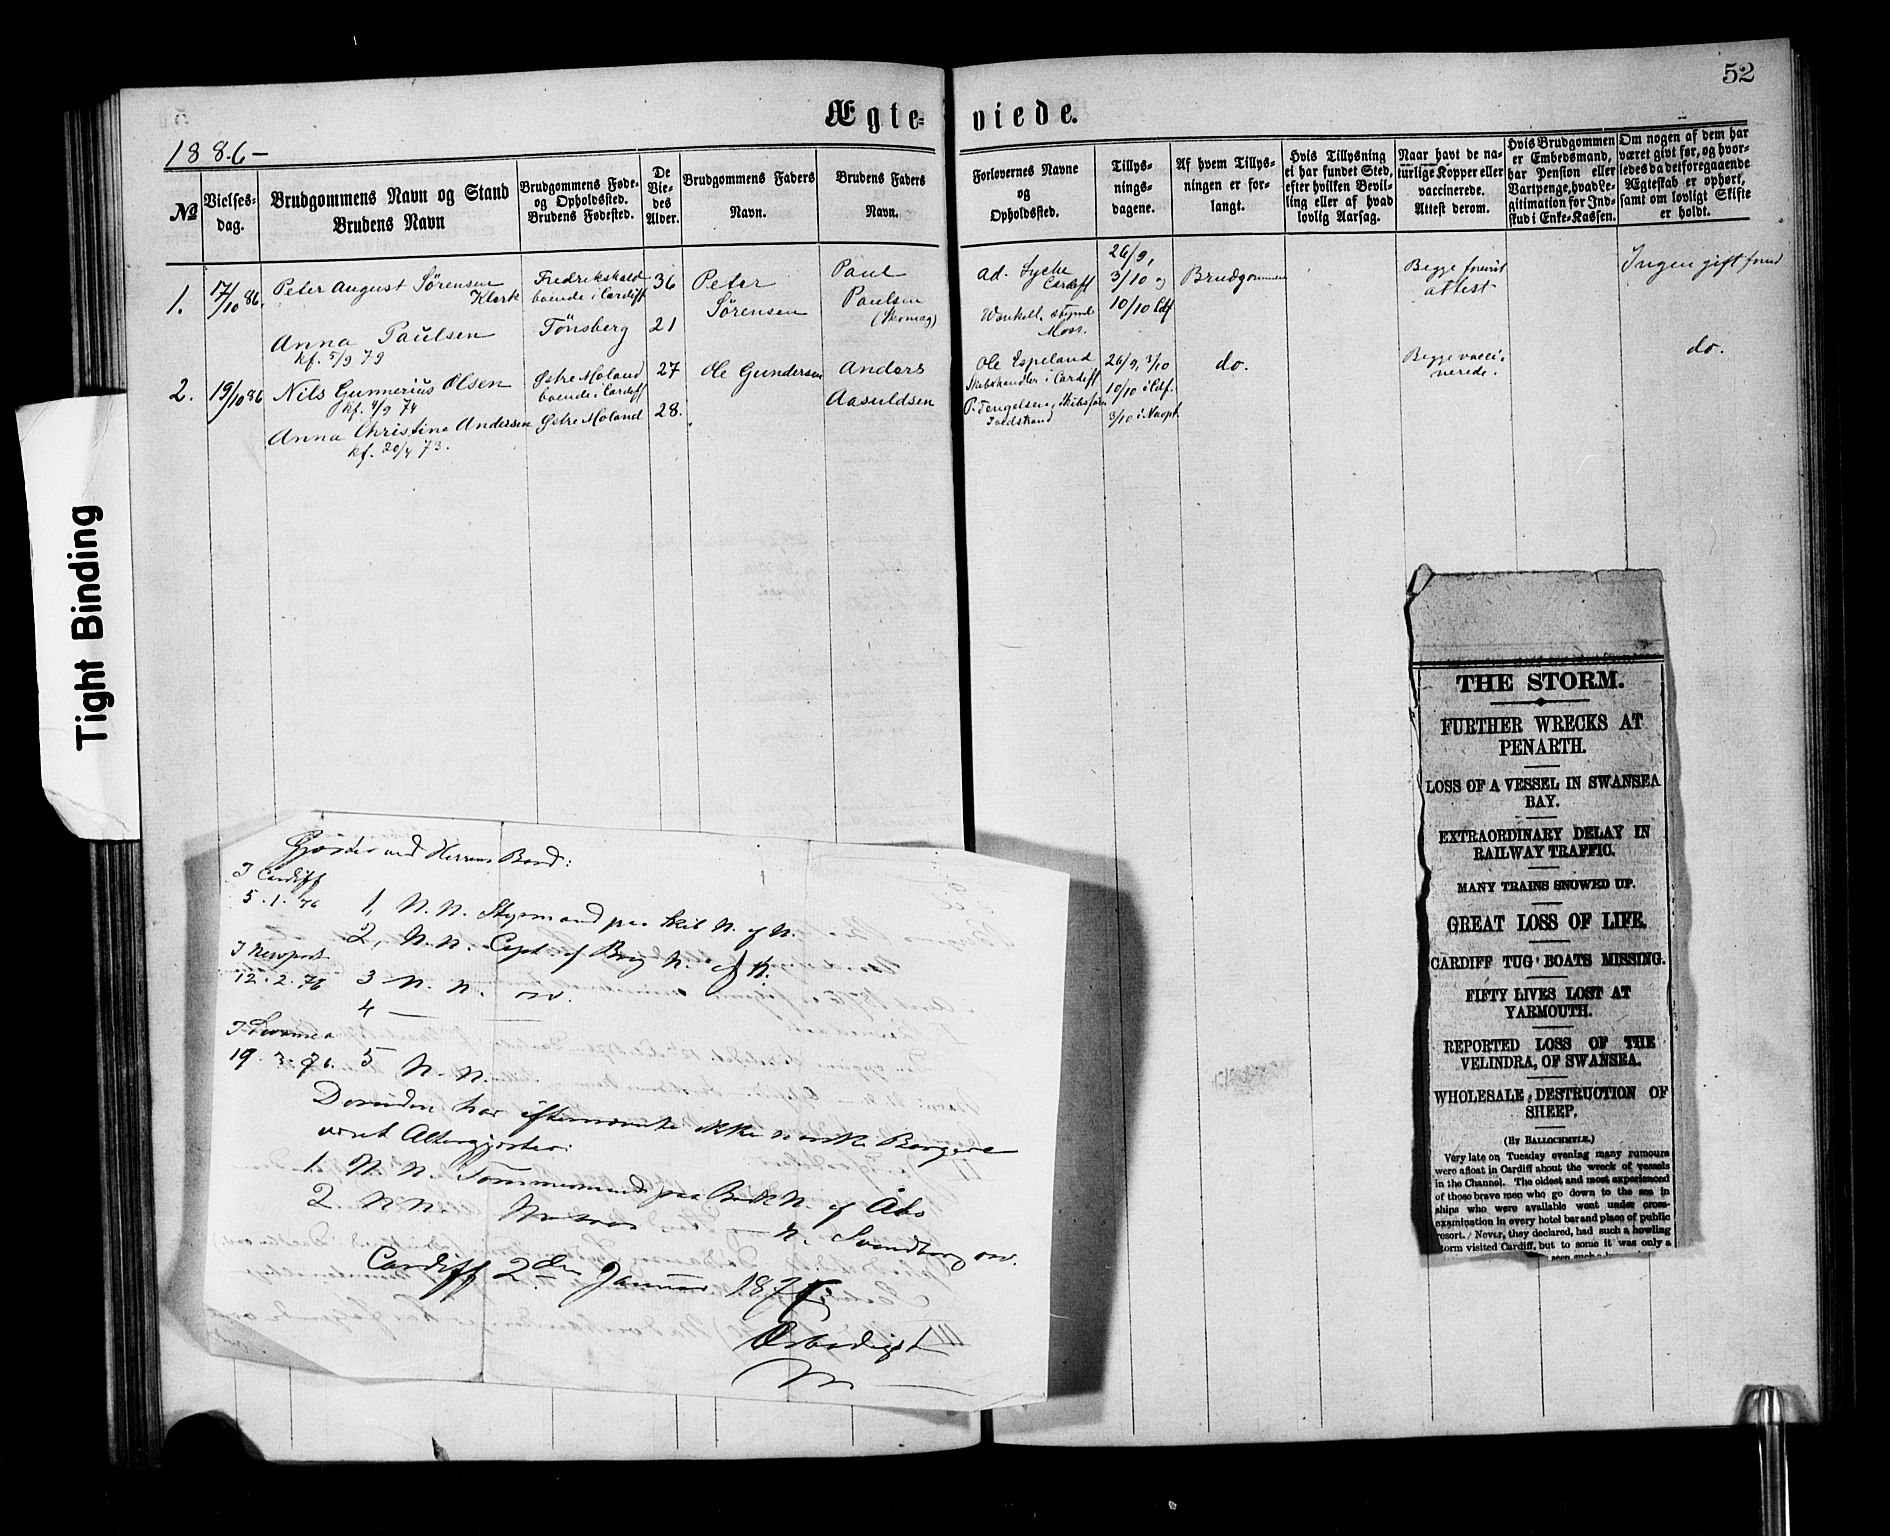 52
Ægte-
viede.
1886-
№
Vielses-
dag.
Brudgommens Navn og Stand
Brudens Navn
Brudgommens Føde-
og Opholdssted.
Brudens Fødested.
De
Vie-
des
Alder.
Brudgommens Faders
Navn.
Brudens Faders
Navn.
Forlovernes Navne
og
Opholdssted.
Tillys-
nings-
dagene.
Af hvem Tillys-
ningen er for-
langt.
Hvis Tillysning
ei har fundet Sted,
efter hvilken Bevil-
ling eller af hvad
lovlig Aarsag.
Naar havt de na-
turlige Kopper eller
vaccinerede.
Attest derom.
Hvis Brudgommen
er Embedsmand,
har Pension eller
Vartpenge, hvad Le-
gitimation for Ind-
skud i Enke-Kassen.
Om nogen af dem har
været givt før, og hvor-
ledes da det foregaaende
Ægteskab er ophørt,
samt om lovligt Skifte
er holdt.
1.
17/10 86.
Peter August Sørensen
Klerk
Anna Paulsen
kf. 5/9 79
Fredrikshald
boende i Cardiff
Tönsberg
36
21
Peter
Sørensen
Paul
Paulsen
(Skomag)
Ad. Lyche
Cardiff
Moss.
26/9,
3/10 og
10/10 Cdf
Brudgommen
Begge
attest
Ingen gift
2.
19/10 86
Nils Gunnerius Olsen
kf. 4/9 74
Anna Christine Andersen
kf. 20/4 73.
Østre Moland
boende i Cardiff
Østre Moland
27
28.
Ole Gundersen
Anders
Aasuldsen
Ole Espeland
Skibshandler i Cardiff
P. Tengelsen, Skibsfører
26/9, 3/10
10/10 i Cdf.
3/10 i Nwpt.
do.
Begge vacci-
nerede.
do.
Tight Binding
Gjæster ved Herrens Bord:
I Cardiff
5.1.76
1, N. N. Styrmand paa Skib N. af N.
2, N. N. Capt. af Brig N. af N.
I Newport
12.2.76
3 N. N. osv.
4 —
I Swansea
19.3.76.
5 N. N.
Desuden har efternævnte ikke norske Borgere
været Altergjæster:
1. N. N. Tømmermand paa Bark N. af Åbo
2 N N. Matros — N. Svendborg osv.
Cardiff 2den Januar 187
Ærbødigst
N.
THE STORM.
FURTHER WRECKS AT
PENARTH.
LOSS OF A VESSEL IN SWANSEA
BAY.
EXTRAORDINARY DELAY IN
RAILWAY TRAFFIC.
MANY TRAINS SNOWED UP.
GREAT LOSS OF LIFE.
CARDIFF TUG BOATS MISSING.
FIFTY LIVES LOST AT
YARMOUTH.
REPORTED LOSS OF THE
VELINDRA, OF SWANSEA.
WHOLESALE DESTRUCTION OF
SHEEP.
(BY BALLOCHMYLE.)
Very late on Tuesday evening many rumours
were afloat in Cardiff about the wreck of vessels
in the Channel. The oldest and most experienced
of those brave men who go down to the sea in
ships who were available went under cross-
examination in every hotel bar and place of public
resort. Never, they declared, had such a howling
storm visited Cardiff, but to some it was only a
seen such a